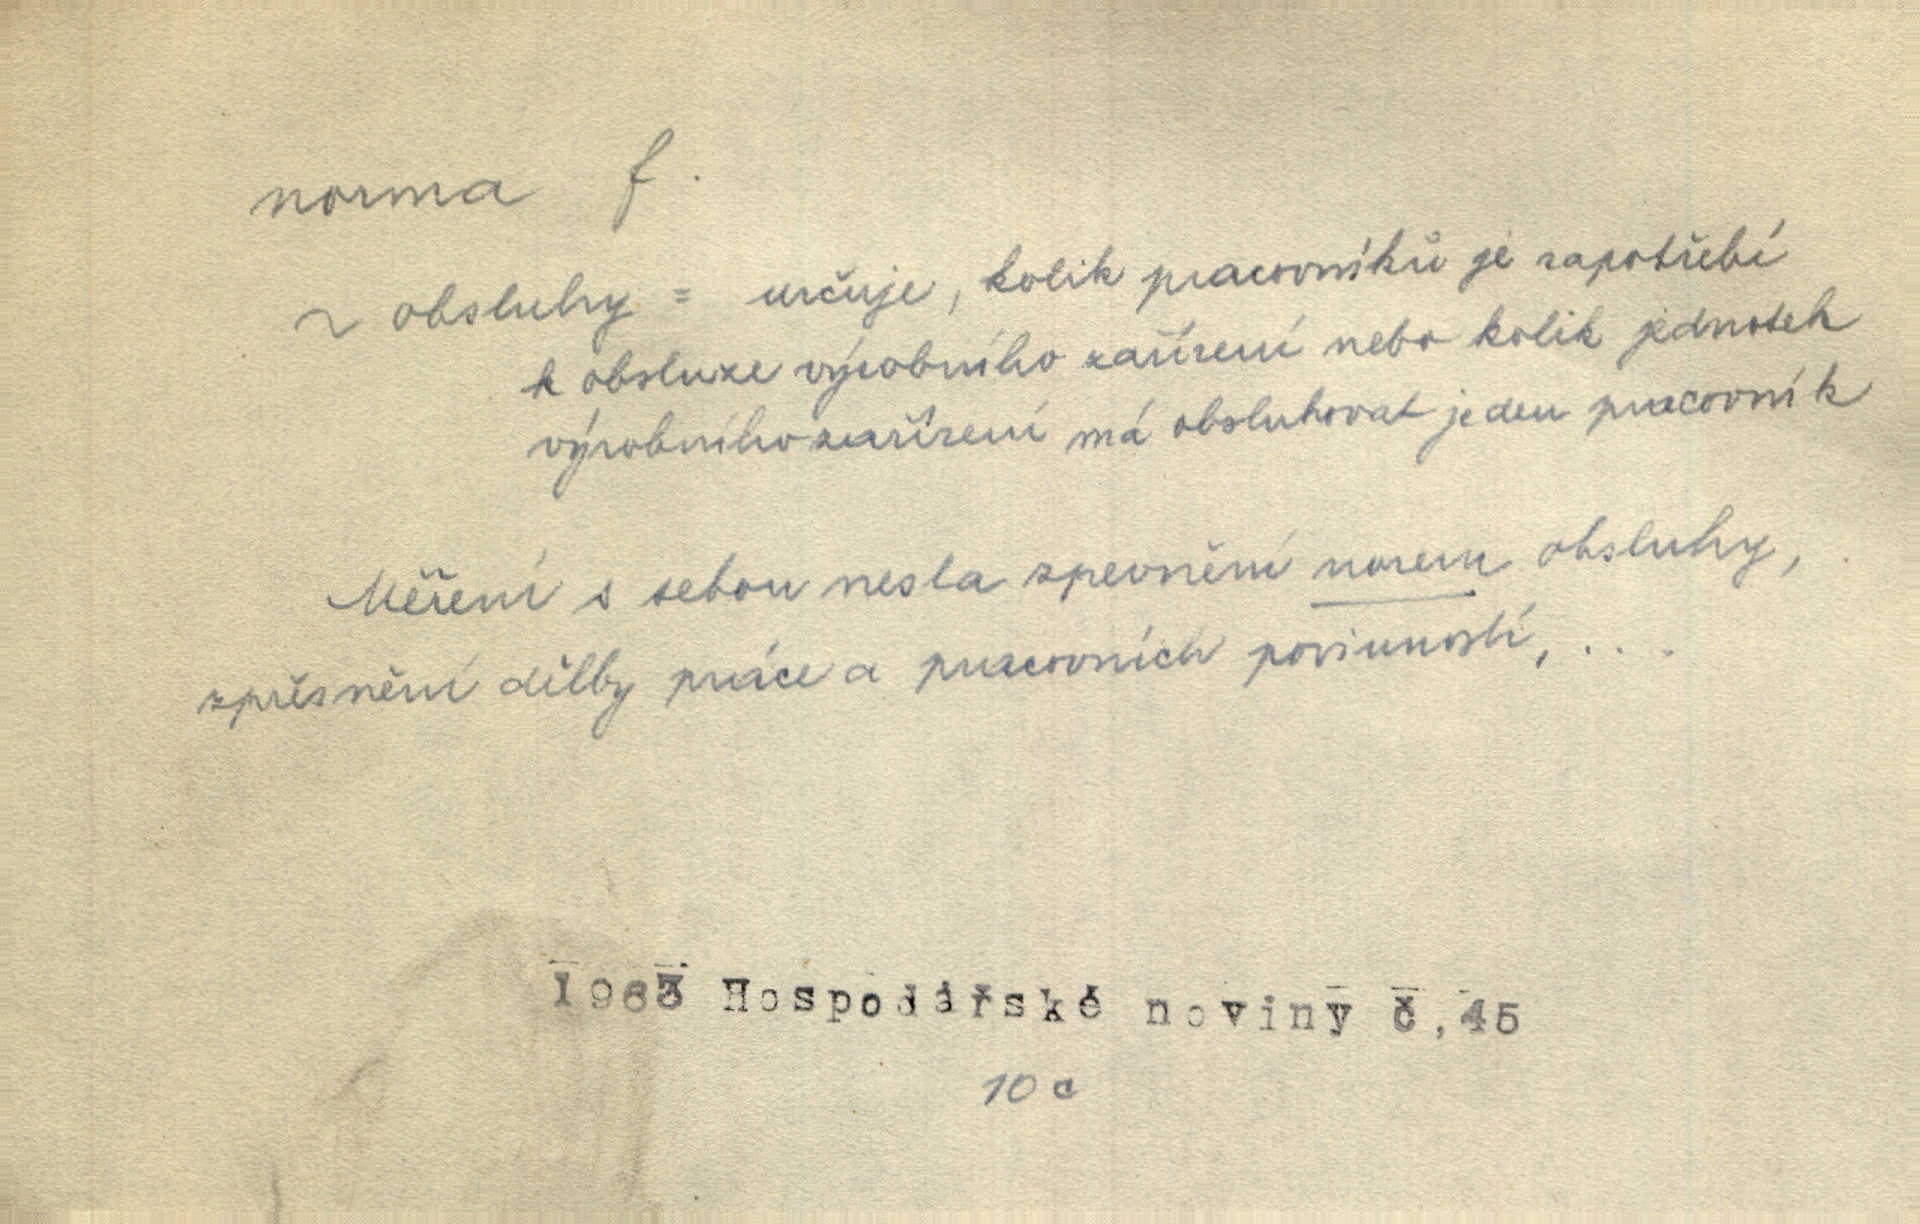 norma f.
~ obsluhy = určuje, kolik pracovníků je zapotřebí
k obsluze výrobního zařízení nebo kolik jednotek
výrobního zařízení má obsluhovat jeden pracovník
Měření s sebou nesla zpevnění norem obsluhy,
zpřesnění dělby práce a pracovních povinností, ....
1963 Hospodářské noviny č,45
10 c